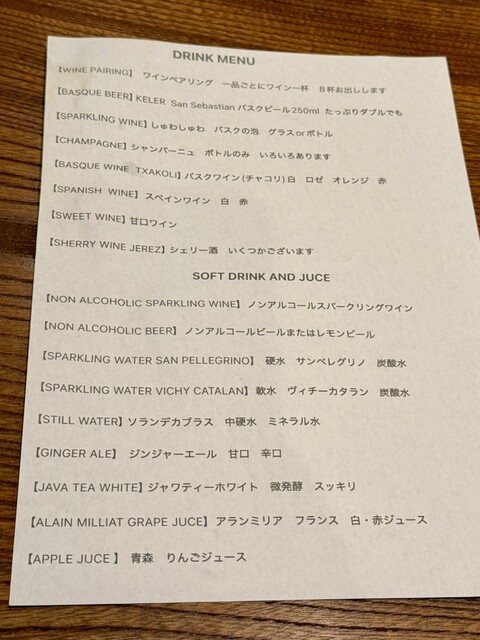 DRINK MENU
【WINE PAIRING】 ワインペアリング 一品ごとにワイン一杯 8杯お出しします
【BASQUE BEER】KELER San Sebastian バスクビール250ml たっぷりダブルでも
【SPARKLING WINE】しゅわしゅわ バスクの泡 グラスorボトル
【CHAMPAGNE】シャンパーニュ ボトルのみ いろいろあります
【BASQUE WINE TXAKOLI】バスクワイン(チャコリ)白 ロゼ オレンジ 赤
【SPANISH WINE】スペインワイン 白 赤
【SWEET WINE】甘口ワイン
【SHERRY WINE JEREZ】シェリー酒 いくつかございます
SOFT DRINK AND JUCE
【NON ALCOHOLIC SPARKLING WINE】ノンアルコールスパークリングワイン
【NON ALCOHOLIC BEER】 ノンアルコールビールまたはレモンビール
【SPARKLING WATER SAN PELLEGRINO】 硬水 サンペレグリノ 炭酸水
【SPARKLING WATER VICHY CATALAN】軟水 ヴィチーカタラン 炭酸水
【STILL WATER】ソランデカブラス 中硬水 ミネラル水
【GINGER ALE】 ジンジャーエール 甘口 辛口
【JAVA TEA WHITE】ジャワティーホワイト 微発酵 スッキリ
【ALAIN MILLIAT GRAPE JUCE】アランミリア フランス 白・赤ジュース
【APPLE JUCE 】 青森 りんごジュース